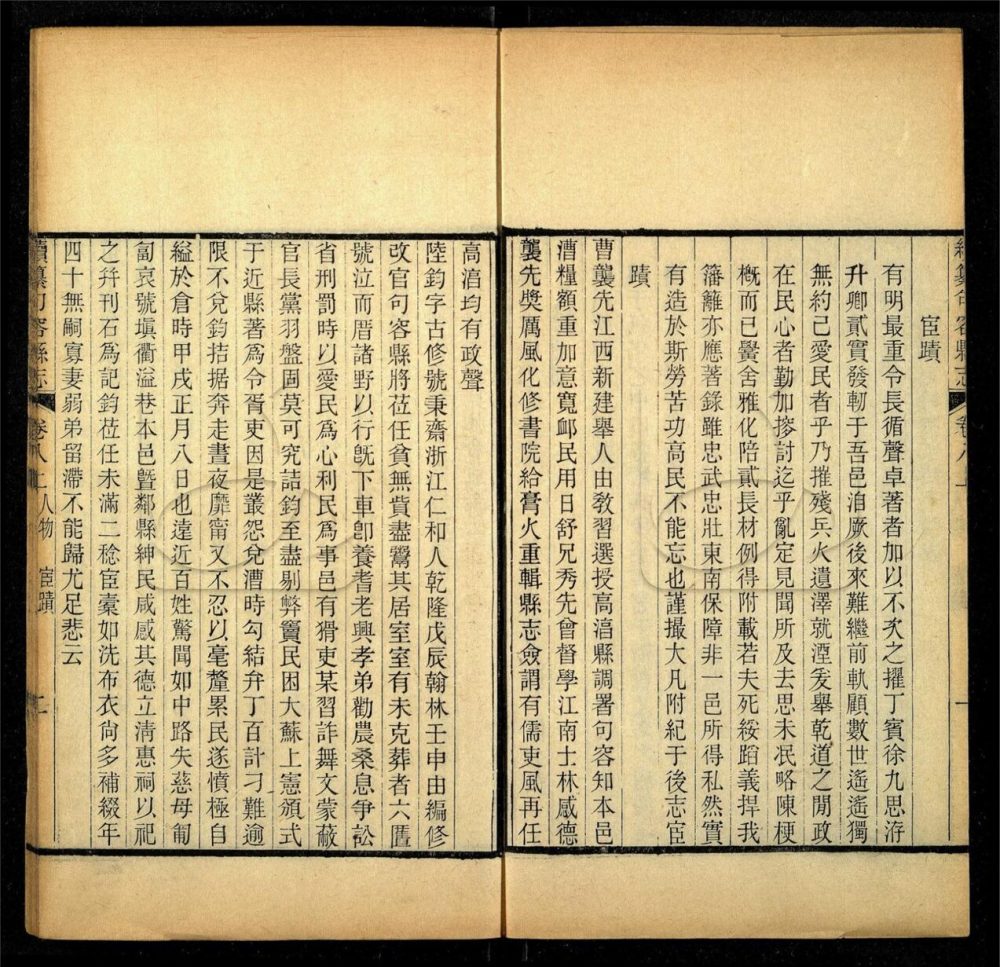 續纂句容縣志 卷八上 一
宦蹟
有明最重令長循聲卓著者加以不次之擢丁賓徐九思洊
升卿貳實發軔于吾邑洎厥後來難繼前軌顧數世遙遙獨
無約己愛民者乎乃摧殘兵火遺澤就湮爰舉乾道之閒政
在民心者勤加摉討迄乎亂定見聞所及去思未泯略陳梗
概而已黌舍雅化陪貳長材例得附載若夫死綏蹈義捍我
籓籬亦應著錄雖忠武忠壯東南保障非一邑所得私然實
有造於斯勞苦功高民不能忘也謹撮大凡附紀于後志宦
蹟
曹襲先江西新建舉人由敎習選授高淯縣調署句容知本邑
漕糧額重加意寬衈民用日舒兄秀先曾督學江南士林感德
襲先奬厲風化修書院給膏火重輯縣志僉謂有儒吏風再任
高淯均有政聲
陸鈞字古修號秉齋浙江仁和人乾隆戊辰翰林壬申由編修
改官句容縣將莅任貧無貲盡鬻其居室室有未克葬者六匶
號泣而厝諸野以行旣下車卽養耆老興孝弟勸農桑息爭訟
省刑罰時以愛民爲心利民爲事邑有猾吏某習詐舞文蒙蔽
官長黨羽盤固莫可究詰鈞至盡剔弊竇民困大蘇上憲頒式
于近縣著爲令胥吏因是叢怨兌漕時勾結弁丁百計刁難逾
限不兌鈞拮据奔走晝夜靡甯又不忍以毫釐累民遂憤極自
縊於倉時甲戌正月八日也遠近百姓驚聞如中路失慈母匍
匐哀號塡衢溢巷本邑曁鄰縣紳民咸感其德立淸惠祠以祀
之幷刊石爲記鈞莅任未滿二稔宦橐如洗布衣尙多補綴年
四十無嗣寡妻弱弟留滯不能歸尤足悲云
續纂句容縣志 卷八上人物 宦蹟 二